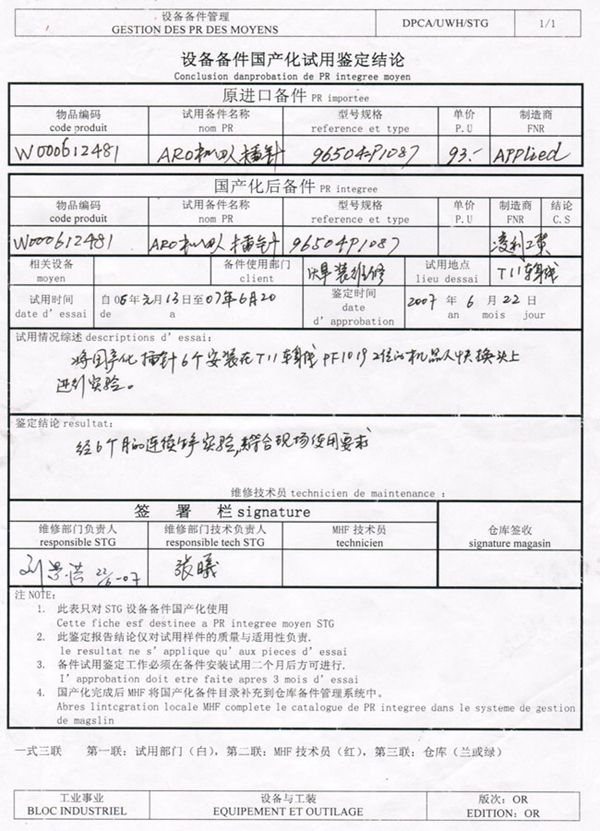 设备备件管理 DPCA/UWH/STG 1/1
GESTION DES PR DES MOYENS
设备备件国产化试用鉴定结论
Conclusion danprobation de PR integree moyen
原进口备件 PR importee
物品编码 试用备件名称 型号规格 单价 制造商
code produit nom PR reference et type P.U FNR
W000612481 ARO机田人插针 96504P1087 93.- APPlied
国产化后备件 PR integree
物品编码 试用备件名称 型号规格 单价 制造商 结论
code produit nom PR reference et type P.U FNR C.S
W000612481 ARO机田人插针 96504P1087 凌利工贸
相关设备 备件使用部门 焊装维修 试用地点 T11车身线
moyen client lieu dessai
试用时间 自06年元月13日至07年6月20 鉴定时间 2007 年 6 月 22 日
date d'essai de a date d'approbation an mois jour
试用情况综述 descriptions d'essai:
将国产化插针6个安装在T11车身线PF1019 2位的机器人快换头上
进行实验。
鉴定结论 resultat:
经6个月的连续 实验,符合现场使用要求
维修技术员 technicien de maintenance :
签 署 栏 signature
维修部门负责人 维修部门技术负责人 MHF 技术员 仓库签收
responsible STG responsible tech STG technicien signature magasin
刘 22/6-07 张曦
注 NOTE:
1. 此表只对 STG 设备备件国产化使用
Cette fiche esf destinee a PR integree moyen STG
2. 此鉴定报告结论仅对试用样件的质量与适用性负责.
le resultat ne s'applique qu'aux pieces d'essai
3. 备件试用鉴定工作必须在备件安装试用二个月后方可进行.
I'approbation doit etre faite apres 3 mois d'essai
4. 国产化完成后 MHF 将国产化备件目录补充到仓库备件管理系统中。
Abres lintcgration locale MHF complete le catalogue de PR integree dans le systeme de gestion
de magslin
一式三联 第一联：试用部门（白），第二联：MHF 技术员（红），第三联：仓库（兰或绿）
工业事业 设备与工装 版次: OR
BLOC INDUSTRIEL EQUIPEMENT ET OUTILAGE EDITION: OR